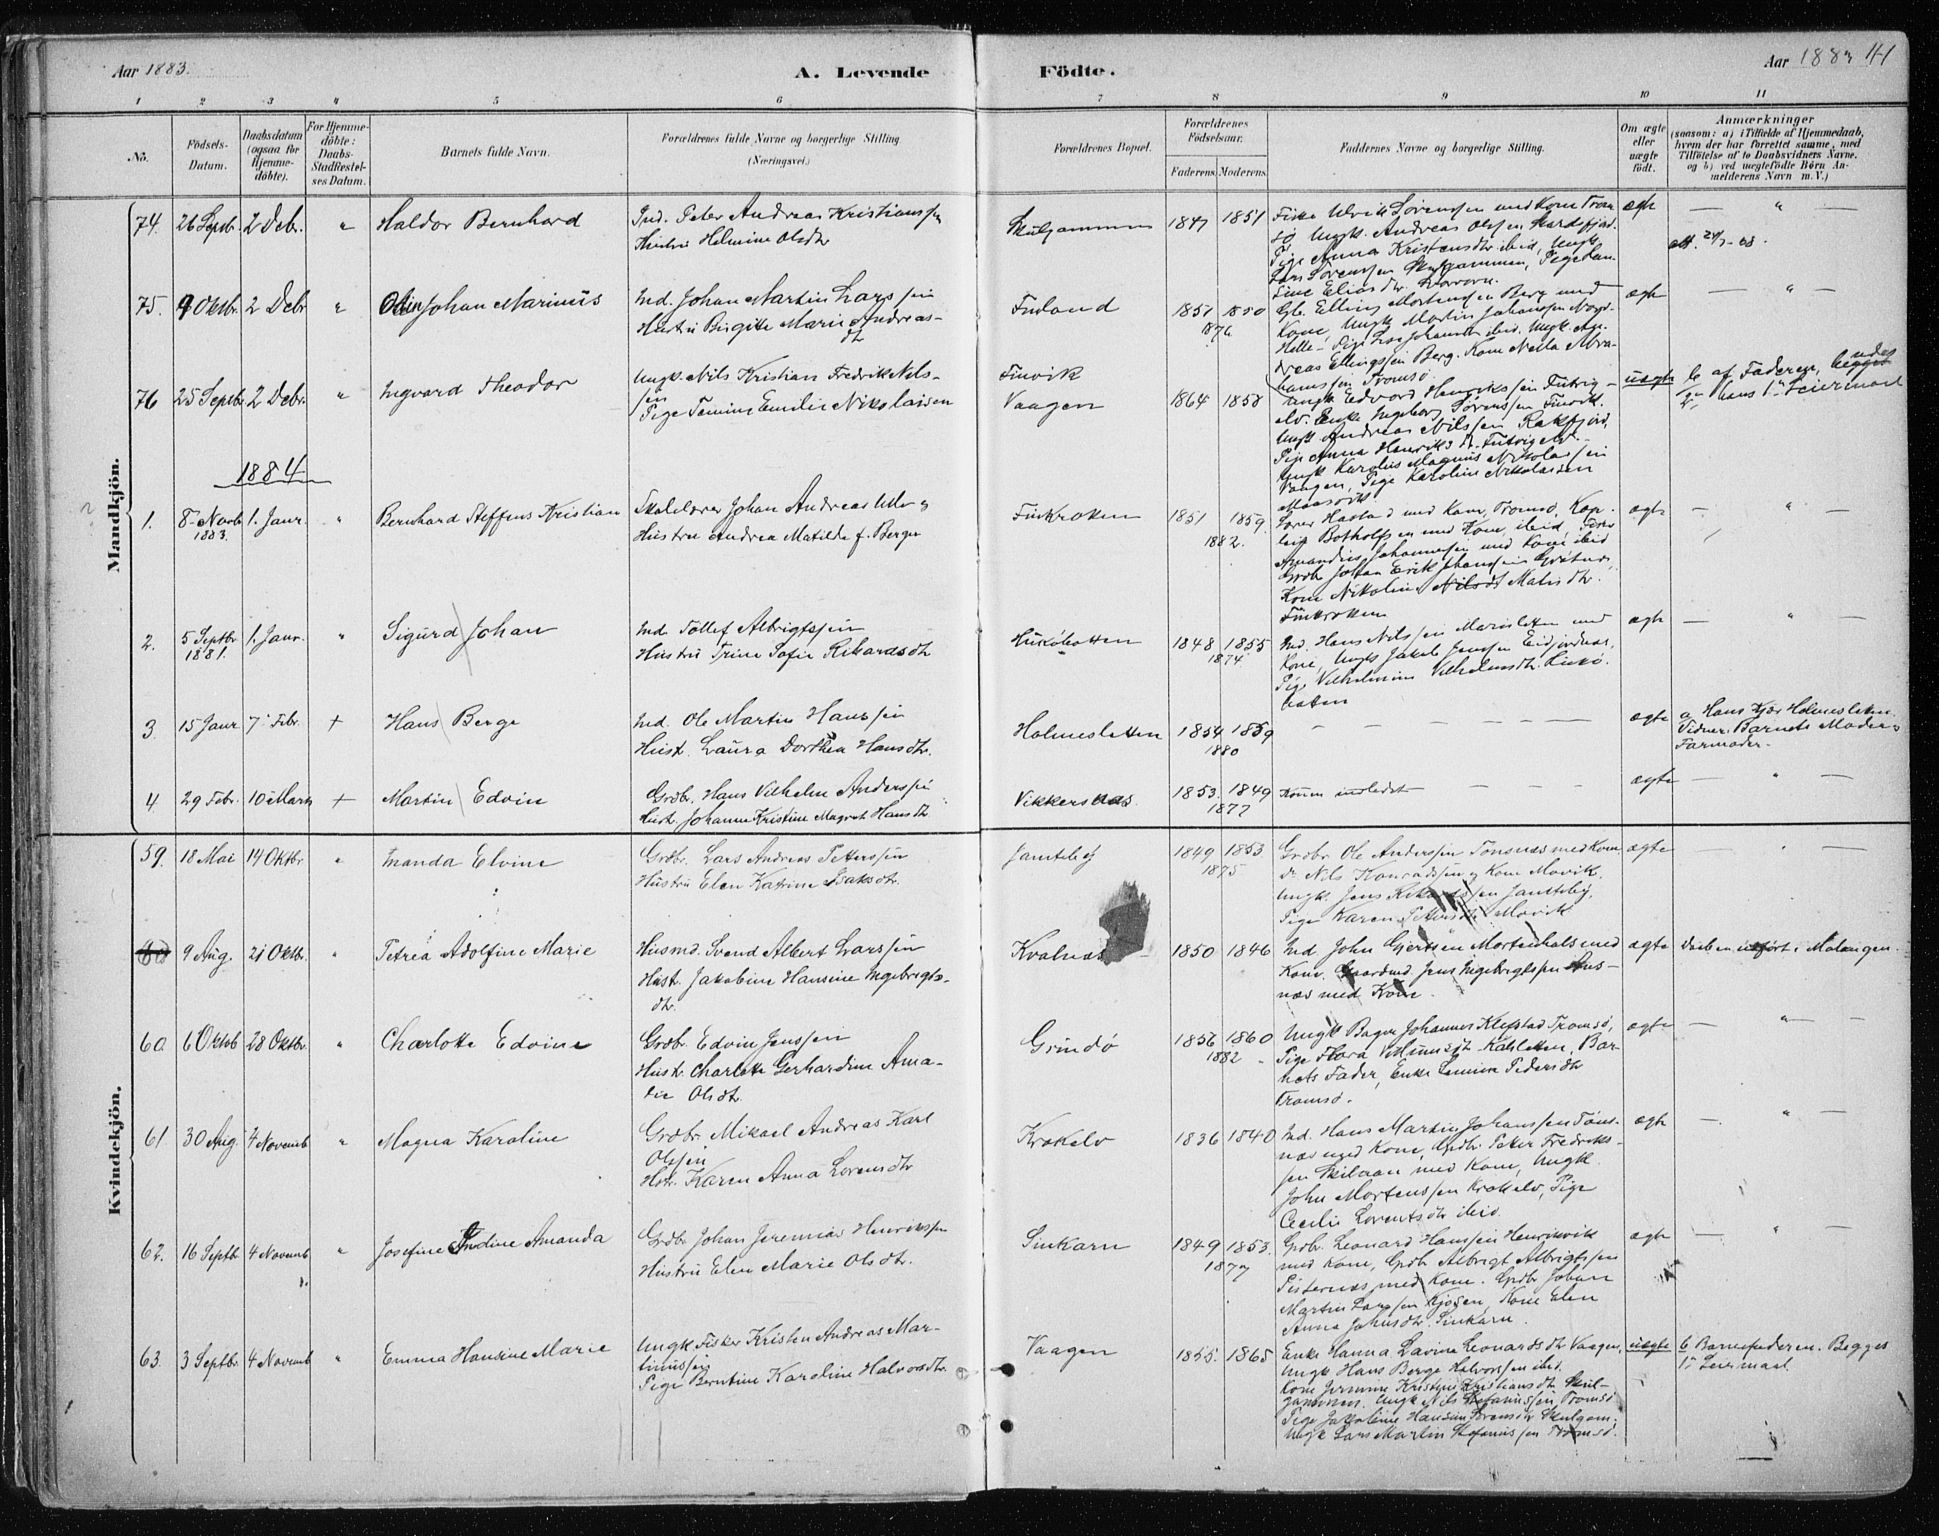 Aar 1883.
A. Levende Födte.
Aar 1883 41
1 2 3 4 5 6 7 8 9 10 11
No.
Födsels-Datum.
Daabsdatum (ogsaa for Hjemme-döbte).
For Hjemme-döbte: Daabs-Stadfæstel-ses Datum.
Barnets fulde Navn.
Forældrenes fulde Navne og borgerlige Stilling (Næringsvei.)
Forældrenes Bopæl.
Forældrenes Födselsaar.
Faderens. Moderens.
Faddernes Navne og borgerlige Stilling.
Om ægte eller uægte födt.
Anmærkninger
(saasom: a) i Tilfælde af Hjemmedaab, hvem der har forrettet samme, med Tilföielse af to Daabsvidners Navne, og b) ved uægtefödte Börn An-melderens Navn m. V.)
Mandkjön.
74. 26 Septb. 2 Decbr. " Haldor Bernhard
Ind. Peter Andreas Kristianssen
Hustru Helmine Olsdtr
Skulgammen 1847 1851
Fisker Ulrik Sørenssen med Kone Trom-
sø, Ungk. Andreas Olssen Skardsfjord,
Pige Anna Kristensdtr ibid, Ungk.
Lars Sørenssen Skulgammen, Pige Dan-
ægte — " —
75. 9 Oktbr. 2 Decbr " Odin Johan Marinus
Ind. Johan Martin Larssen
Hustru Birgitte Marie Andreas-
dtr
Finland 1851 1850
1876
Gbr. Elling Mortenssen Berg med
Kone, Ungk Martin Johanssen
dreas Ellingssen Berg. Kone Nella Abra-
hamssen Tromsø
ægte — " —
76 25 Septb 2 Decbr " Ingvard Theodor
Ungk. Nils Kristian Fredrik Nils-
sen
Pige Emilie Nikolaisen
Finvik
Vaagen 1864 1858
Ungk Edvard Henrikssen Futrig-
elv. Enke Ingeborg Sørenssen Finvik
Ungk Andreas Nilssen Rakfjord,
Pige Anna Henriksdtr. Futrigelv.
Ungk Karolus Magnus Nikolaissen
Vaagen, Pige Karoline Nikolaisen
uægte b af Faderen,
hans 1ste Leiermaal
1884
1. 8 Novb 1883. 1. Janr. " Bernhard Steffens Kristian
Skolelærer Johan Andreas
Hustru Andrea Matilde f. Berger
Finkroken 1851 1859
1882.
Hastad med Kone, Tromsø,
Botholfssen med Kone, ibid, Fisker
Amandus Johannessen med Kone ibid
Grdbr Johan Erik Johanssen Grøtnes,
Kone Nikoline Nilsdtr Matisdtr.
Finkroken
ægte — " —
2. 5 Septbr 1881. 1. Janr. " Sigurd Johan
Ind. Tollef Albrigtssen
Hustru Trine Sofie Rikardsdtr
1848 1855
1874.
Ind. Hans Nilssen med
Kone, Ungk Jakob Jenssen Eidjordnes,
Pige Vilhelmine Vilhelmsdtr
ægte — " —
3. 15 Janr 7. Febr. + Hans Berge
Ind. Ole Martin Hanssen
Hust. Laura Dorthea Hansdtr.
Holmesletten 1854 1859
1880
— — — — —
ægte a Hans Kjær Holmesletten
Vidner: Barnets Moder &
Farmoder.
4. 29 Febr. 10 Marts + Martin Edvin
Grdbr. Hans Vilhelm Anderssen
Hustr. Johanne Kristine Magret Hansdtr
Vikkersnæs. 1853. 1849
1877
Konen indledet — — —
ægte — " —
Kvindekjön.
59. 18 Mai 14 Oktbr " Inanda Elvine
Grdbr. Lars Andreas Petterssen
Hustru Elen Katrine Isaksdtr.
Jamtebÿ 1849 1853
1875
Grdbr Ole Anderssen Tonsnæs med Kone
Dr. Nils Konradssen og Kone Movik.
Ungk. Jens Rikardssen Jamtebÿ
Pige Karen Pettersdtr Movik
ægte — " —
9 Aug. 21 Oktbr. " Petrea Adolfine Marie
Husmd. Svend Albert Larssen
Hust. Jakobine Hansine Ingebrigts-
dtr.
Kvalnæs 1850 1846
Ind John Gjertsen Mortenhals med
Kone. Gaardmd. Jens Ingebrigtssen Ans-
næs med Kone.
ægte Daaben udført i Malangen.
60. 6 Oktb 28 Oktbr. " Charlotte Edvine
Grdbr. Edvin Jenssen
Hust. Charlotte Gerhardine Ama-
lie Olsdtr.
Grindø 1856 1860
1882
Ungk Bager Johannes Klefstad Tromsø,
Pige Flora Kalsletten, Bar-
nets Fader, Enke Pedersdtr
Tromsø.
ægte — " —
61. 30 Aug. 4 Novemb " Magna Karoline
Grdbr. Mikael Andreas Karl
Olssen
Hstr. Karen Anna Lorensdtr
Krokelv 1836 1840
Ind. Hans Martin Johanssen Tøns-
næs med Kone, Grdbr. Peter Fredriks-
sen Skilvaan med Kone, Ungk.
John Mortenssen Krokelv, Pige
Cecilie Lorentsdtr ibid.
ægte — " —
62. 16 Septb. 4 Novemb " Josefine Indine Amanda
Grdbr Johan Jeremias Henrikssen
Hustru Elen Marie Olsdtr.
Sinkarn 1849 1853.
1877
Grdbr. Leonard Hanssen Henrikvik
med Kone, Grdbr Albrigt Albrigtssen
Sisternæs med Kone. Grdbr Johan
Martin Larssen Kjøsen, Kone Elen
Anna Johnsdtr. Sinkarn.
ægte — " —
63. 3 Septbr. 4 Novemb " Emma Hansine Marie
Ungk Fisker Kristen Andreas Mar-
tinussen
Pige Berntine Karoline Halvorsdtr.
Vaagen 1855. 1865
Enke Hanna Lavine Leonardsdtr Vaagen,
Ungk Hans Berge Halvorssen ibid.
Kone Jermine Kristine Kristiansdtr Skul-
gammen. Ungk Nils Stefanussen Tromsø
Pige Jakobine Hansine Sørensdtr Skulgam.
Ungk Lars Martin Stefanussen Tromsø.
uægte b Barnefaderen. Begges
1ste Leiermaal